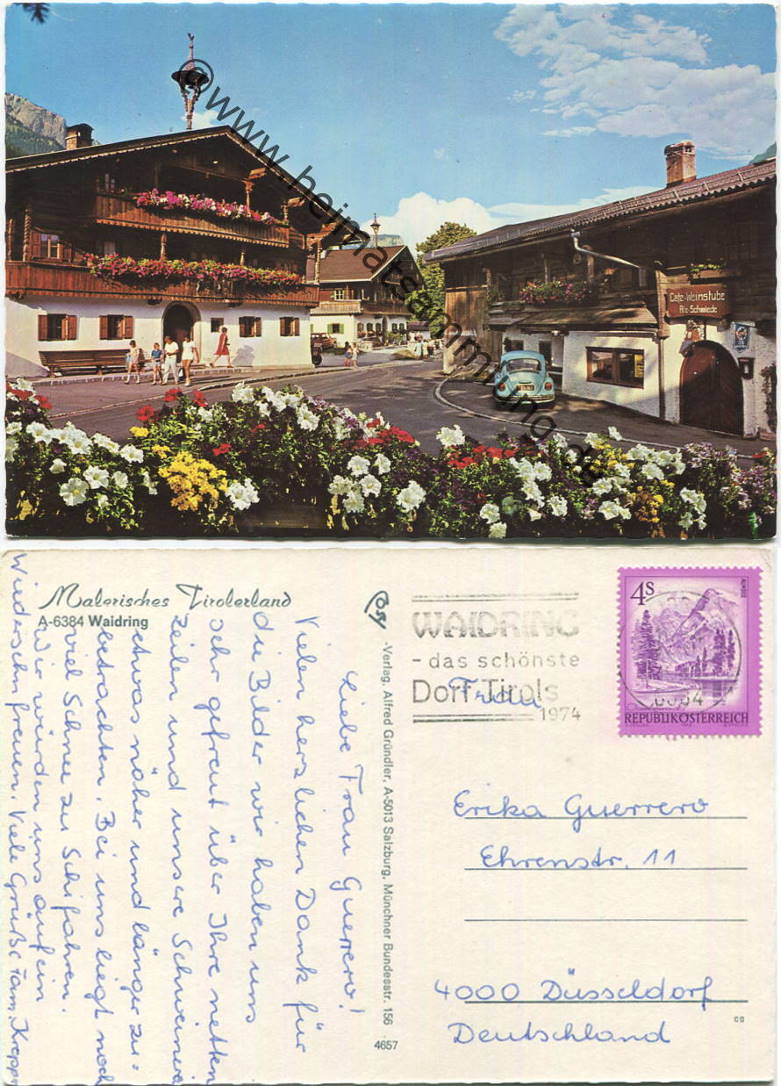 © www.heimatsammlung.de
Cafe-Weinstube
Alte-Schmiede
Malerisches Tirolerland
A-6384 Waidring
Cosy
-Verlag, Alfred Gründler, A-5013 Salzburg, Münchner Bundesstr. 156
4657
WAIDRING
- das schönste
Dorf Tirols
1974
6384
4S
REPUBLIK ÖSTERREICH
Frau
Erika Guerrero
Ehrenstr. 11
4000 Düsseldorf
Deutschland
CG
Liebe Frau Guerrero!
Vielen herzlichen Dank für
die Bilder wir haben uns
sehr gefreut über Ihre netten
Zeilen und unsere Schweine
etwas näher und länger zu=
betrachten. Bei uns liegt noch
viel Schnee zu Schifahren.
Wir würden uns auf ein
Wiedersehn freuen. Viele Grüße Fam.